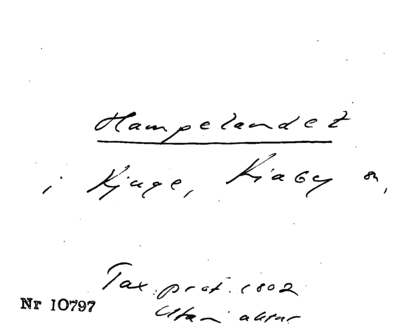 Hampelandet
i Kjuge, Kiaby sn,
Tax. prot. 1802
Utan aktnr
Nr 10797